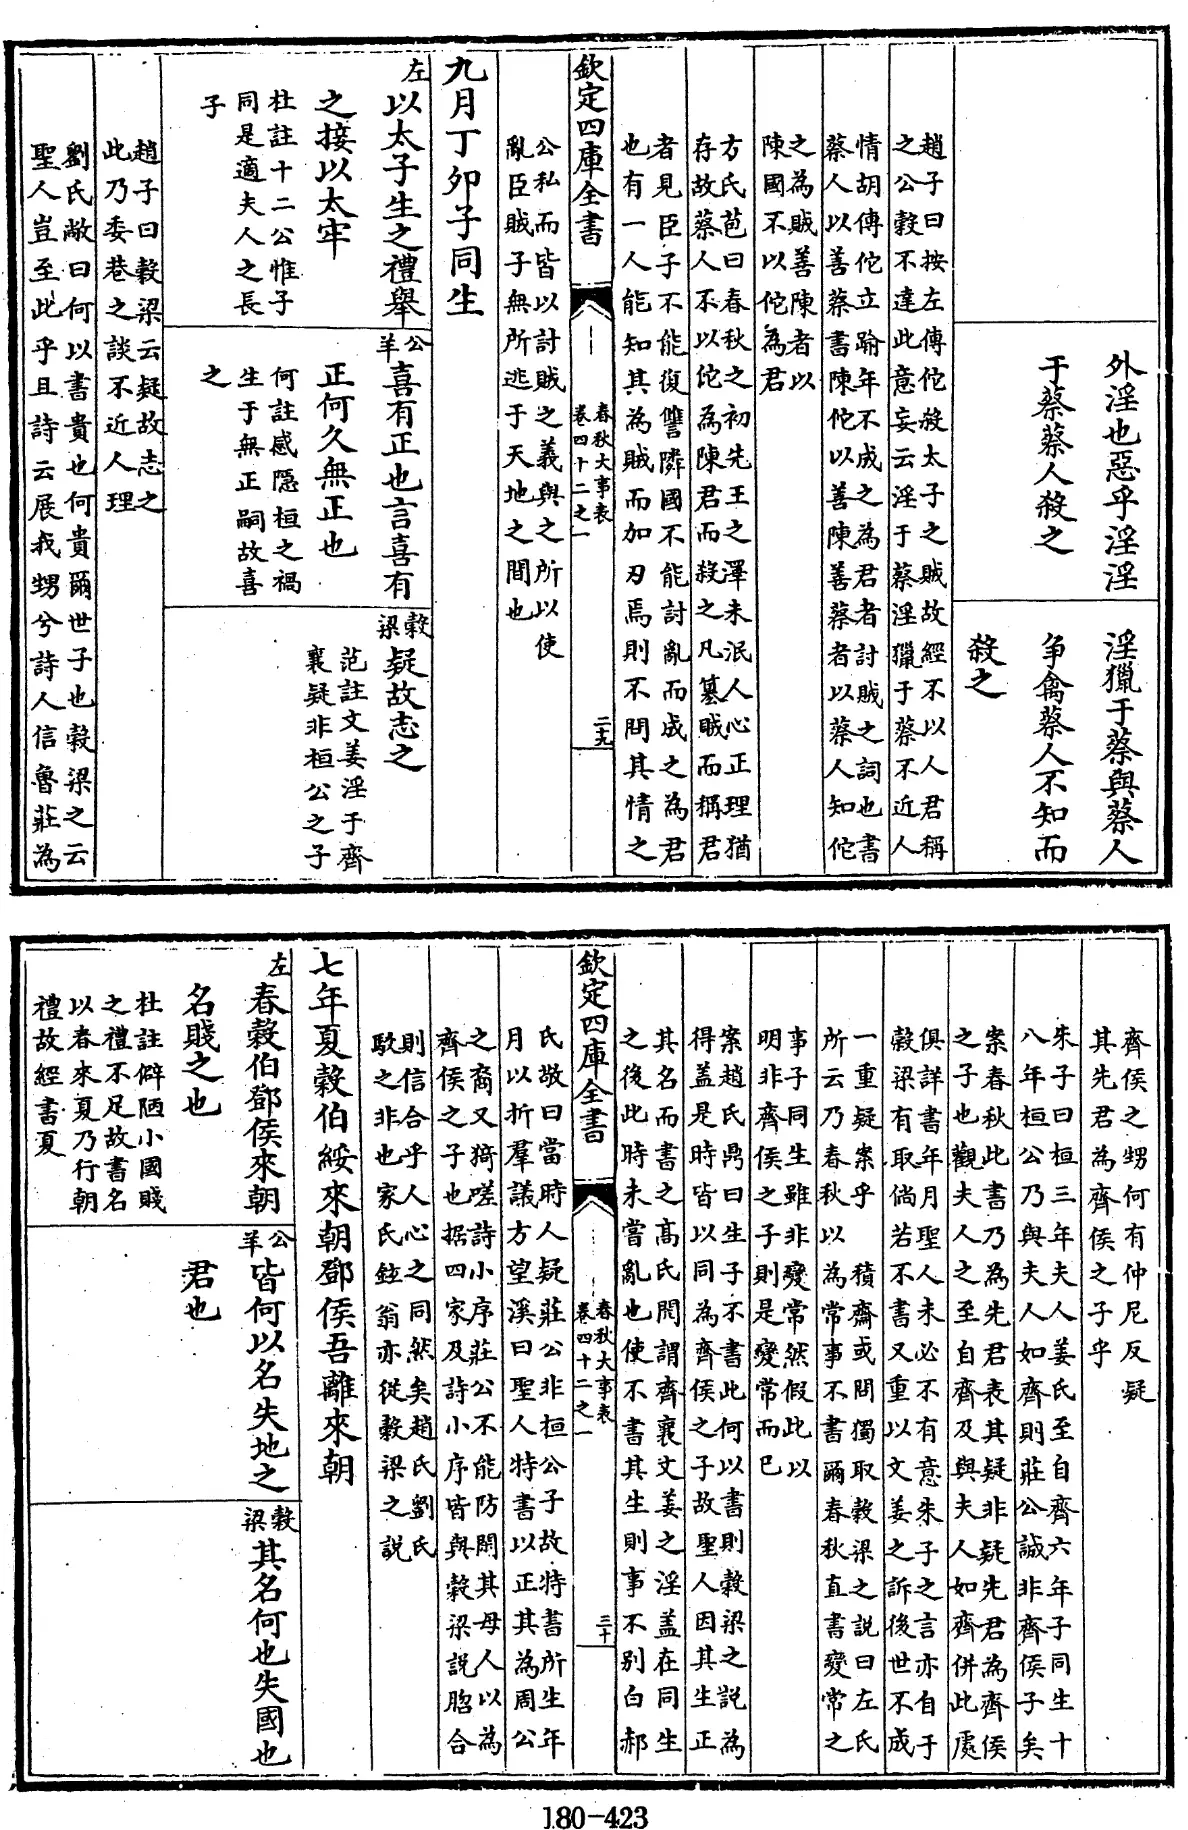 外淫也惡乎淫淫
于蔡蔡人殺之
淫獵于蔡與蔡人
爭禽蔡人不知而
殺之
趙子曰按左傳佗殺太子之賊故經不以人君稱
之公穀不達此意妄云淫于蔡淫獵于蔡不近人
情胡傳佗立踰年不成之為君者討賊之詞也書
蔡人以善蔡書陳佗以善陳善蔡者以蔡人知佗
之為賊善陳者以
陳國不以佗為君
方氏苞曰春秋之初先王之澤未泯人心正理猶
存故蔡人不以佗為陳君而殺之凡篡賊而稱君
者見臣子不能復讐隣國不能討亂而成之為君
也有一人能知其為賊而加刃焉則不問其情之
欽定四庫全書
春秋大事表
卷四十二之一
二十九
公私而皆以討賊之義與之所以使
亂臣賊子無所逃于天地之間也
九月丁卯子同生
左
以太子生之禮舉
之接以太牢
杜註十二公惟子
同是適夫人之長
子
公羊
喜有正也言喜有
正何久無正也
何註感隱桓之禍
生于無正嗣故喜
之
穀梁
疑故志之
范註文姜淫于齊
襄疑非桓公之子
趙子曰穀梁云疑故志之
此乃委巷之談不近人理
劉氏敞曰何以書貴也何貴爾世子也穀梁之云
聖人豈至此乎且詩云展我甥兮詩人信魯莊為
齊侯之甥何有仲尼反疑
其先君為齊侯之子乎
朱子曰桓三年夫人姜氏至自齊六年子同生十
八年桓公乃與夫人如齊則莊公誠非齊侯子矣
案春秋此書乃為先君表其疑非疑先君為齊侯
之子也觀夫人之至自齊及與夫人如齊併此處
俱詳書年月聖人未必不有意朱子之言亦自于
穀梁有取倘若不書又重以文姜之訴後世不成
一重疑案乎 積齋或問獨取穀梁之說曰左氏
所云乃春秋以為常事不書爾春秋直書變常之
事子同生雖非變常然假此以
明非齊侯之子則是變常而已
案趙氏鼎曰生子不書此何以書則穀梁之說為
得蓋是時皆以同為齊侯之子故聖人因其生正
其名而書之高氏閌謂齊襄文姜之淫蓋在同生
之後此時未嘗亂也使不書其生則事不別白郝
欽定四庫全書
春秋大事表
卷四十二之一
三十
氏敬曰當時人疑莊公非桓公子故特書所生年
月以折羣議方望溪曰聖人特書以正其為周公
之裔又猗嗟詩小序莊公不能防閑其母人以為
齊侯之子也据四家及詩小序皆與穀梁說脗合
則信合乎人心之同然矣趙氏劉氏
駁之非也家氏鉉翁亦從穀梁之說
七年夏穀伯綏來朝鄧侯吾離來朝
左
春穀伯鄧侯來朝
名賤之也
杜註僻陋小國賤
之禮不足故書名
以春來夏乃行朝
禮故經書夏
公羊
皆何以名失地之
君也
穀梁
其名何也失國也
180-423